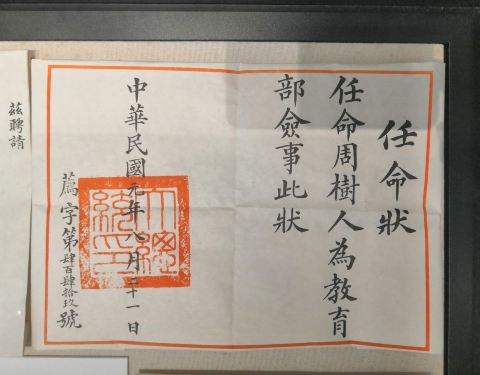 任命狀
任命周樹人為教育
部僉事此狀
中華民國元年八月二十一日
大總統印
薦字第肆百肆拾玖號
茲聘請